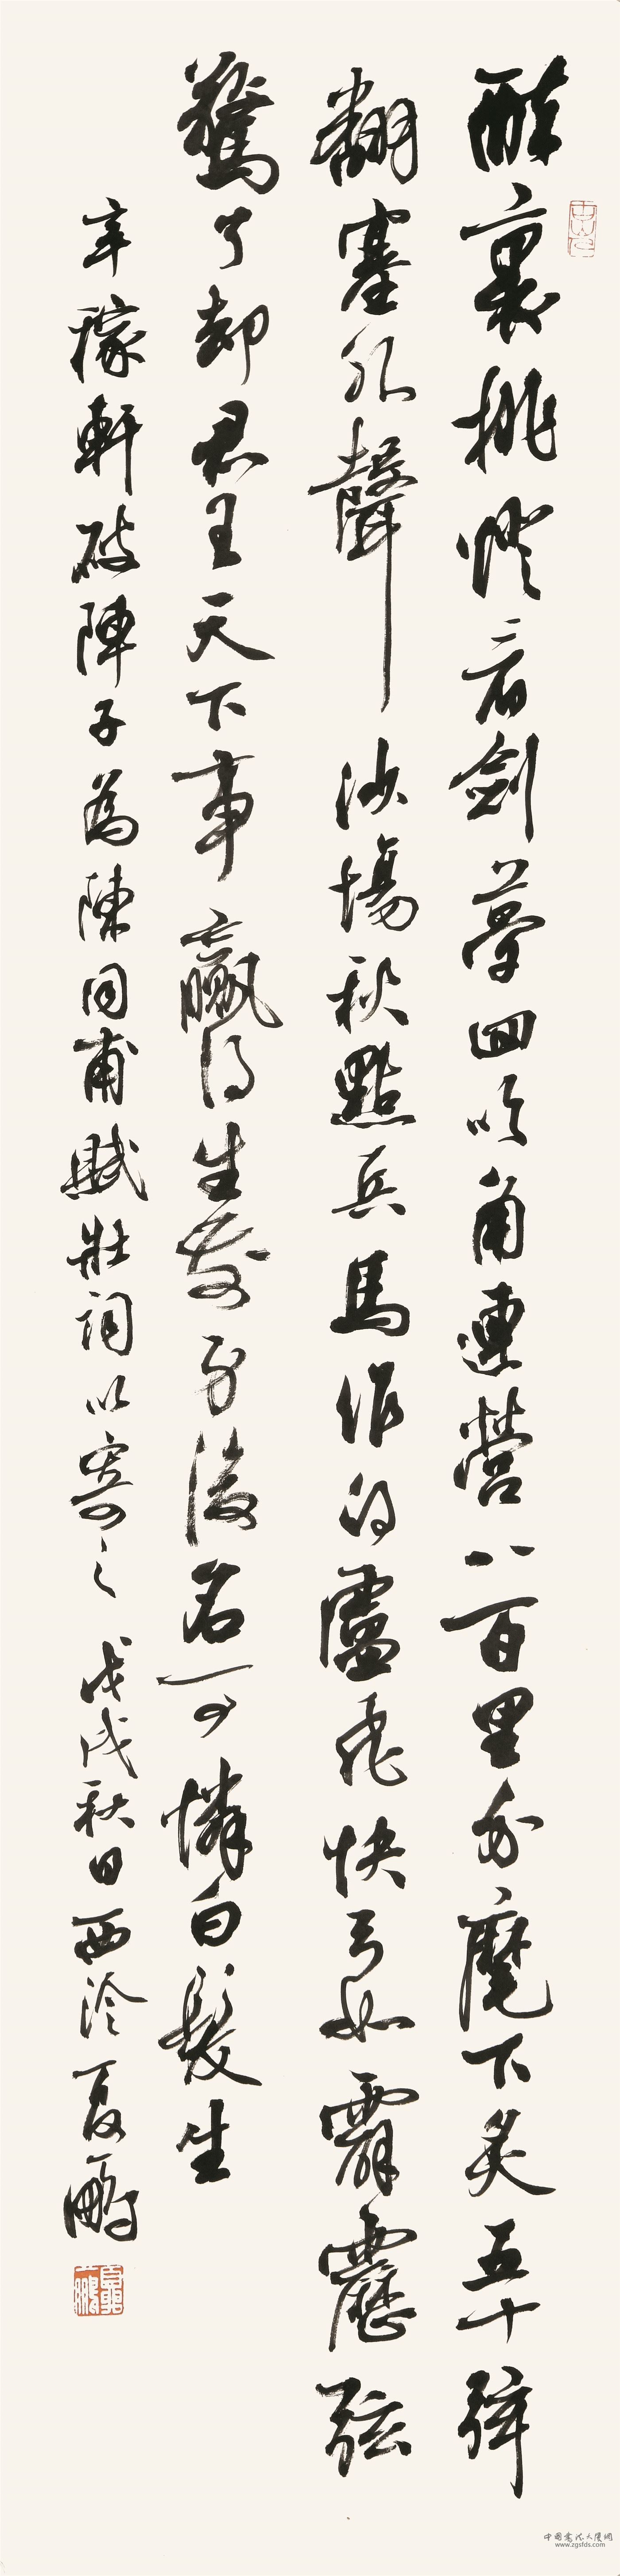 醉裏挑燈看劍夢回吹角連營八百里分麾下炙五十弦
翻塞外聲沙場秋點兵馬作的盧飛快弓如霹靂弦
驚了却君王天下事贏得生前身後名可憐白髮生
辛稼軒破陣子為陳同甫賦壯詞以寄之戊戌秋日西泠夏鵬
中國書法大廈網
www.zgsfds.com